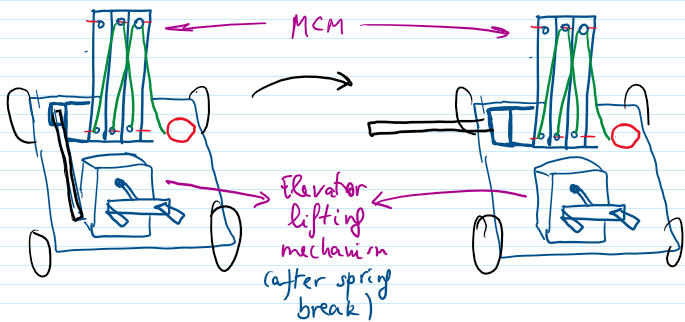 MCM
Elevator
lifting
mechanism
(after spring
break)